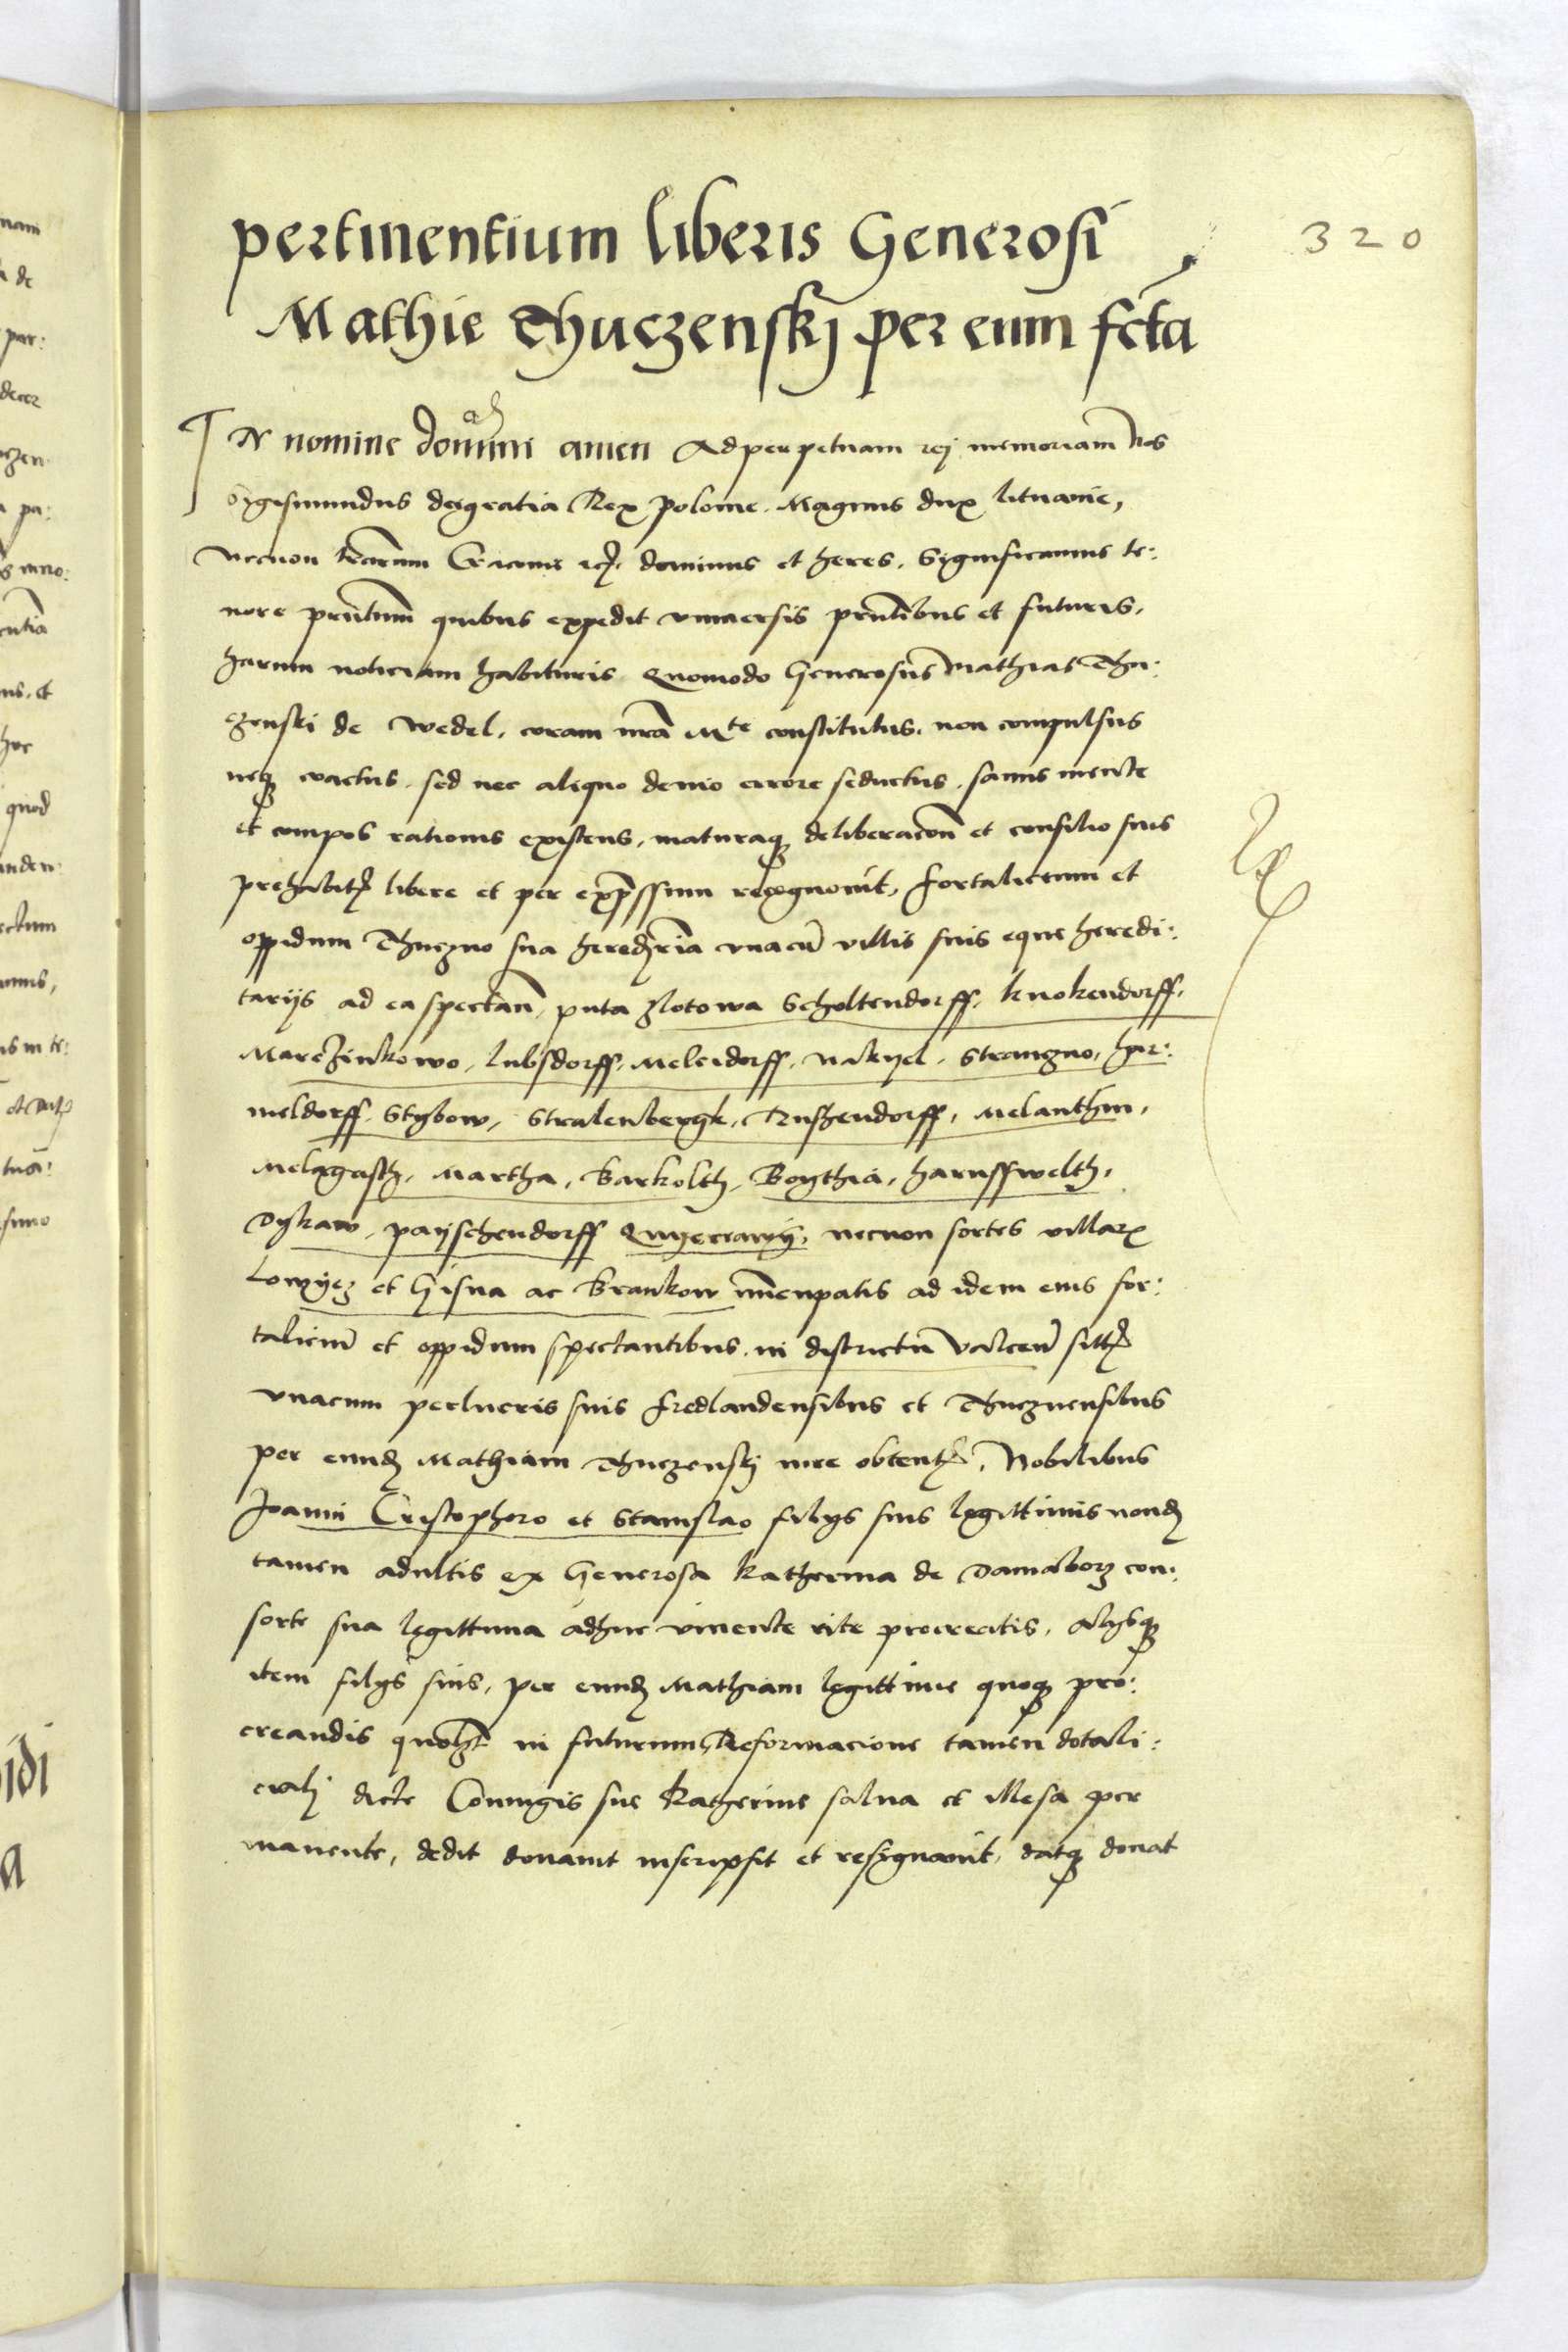 320
pertinentium liberis Generosi
Mathie Thuczenskj per eum fcta
IN nomine domini amen Ad perpetuam rej memoriam Nos
Sygismundus dei gratia Rex polonie. Magnus dux lituanie,
Necnon terarum Cracouie dominus et heres. Significamus te:
nore pr̃ntium quibus expedit vniuersis pr̃ntibus et futuris.
harum noticiam habituris Quomodo Generosus Mathias Thu:
czenski de Wedel, coram nr̃a Mte constitutus. non compulsus
neqꝫ coactus. sed nec aliquo deuio errore seductus. sanus mente
et compos rationis existens, maturaqꝫ deliberacõne et consilio suis
prehabitꝭ libere et per exp̃ssum recognouit, fortalicium et
oppidum Thuczno sua hereditr̃ia vnacũ villis suis eque heredi:
tarijs ad ea spectañ, puta Zlotowa Scholtendorff, knokendorff,
Marczinkowo, lubsdorff, Meleidorff, Nakijel. Strangno, har:
meldorff. Stybow, Stralenbergk, Ruszendorff, Melanthin,
Melgasth, Martha, Karkolth, Boythia, harnsswelth,
Dykaw, payschendorff necnon sortes villarꝭ
Lowycz et Gisna ac Krankow ad idem eius for:
taliciũ et oppidum spectantibus. in districtu Valceñ
vnacum suis fredlandensibus et Thucznensibus
per eundꝫ Mathiam Thuczenskj iure obtentꝭ, Nobilibus
Joanni Cristophoro et Stanislao filijs suis legittimis nondꝫ
tamen adultis ex Generosa Katherina de Damaborz con:
sorte sua legittima adhuc viuente rite procreatis, alijsqꝫ
item filijs suis, per eundꝫ Mathiam legittime quoqꝫ pro:
creandis in futurum, Reformacione tamen dotali:
dicte Coniugis sue Katherine salua et illesa per
manente, dedit donauit inscripsit et resignauit, datqꝫ donat